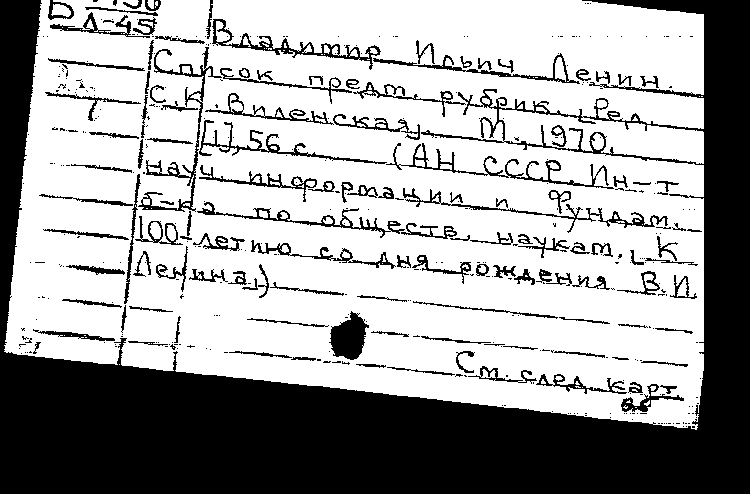 Б
Л-45
Владимир Ильич Ленин.
Список предм. рубрик. [Ред.
С.К. Виленская]. М., 1970.
[1], 56 с. (АН СССР. Ин-т
науч. информации и Фундам.
б-ка по обществ. наукам. [К
100-летию со дня рождения В.И.
Ленина]).
См. след. карт.